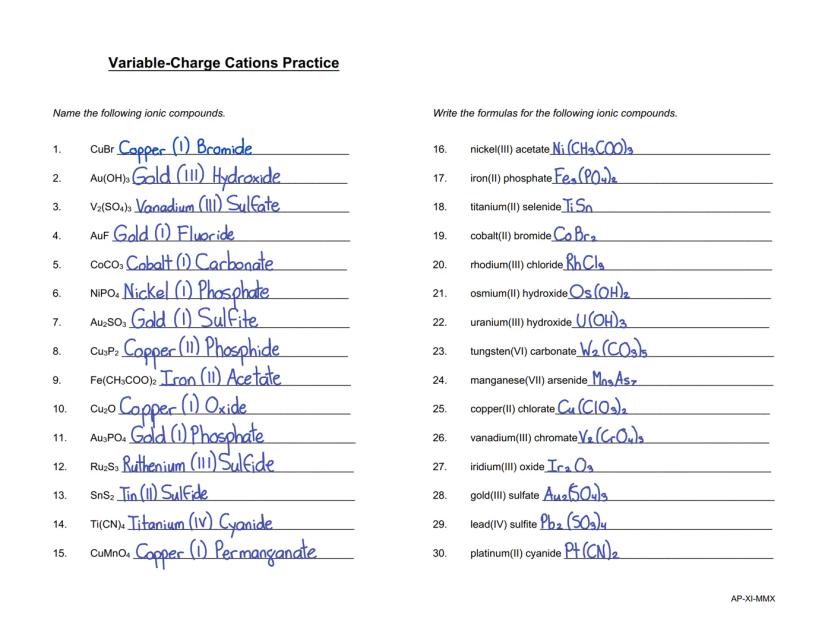 Variable-Charge Cations Practice
Name the following ionic compounds.
1. CuBr Copper (I) Bromide
2. Au(OH)₃ Gold (III) Hydroxide
3. V₂(SO₄)₃ Vanadium (III) Sulfate
4. AuF Gold (I) Fluoride
5. CoCO₃ Cobalt (I) Carbonate
6. NiPO₄ Nickel (I) Phosphate
7. Au₂SO₃ Gold (I) Sulfite
8. Cu₃P₂ Copper (II) Phosphide
9. Fe(CH₃COO)₂ Iron (II) Acetate
10. Cu₂O Copper (I) Oxide
11. Au₃PO₄ Gold (I) Phosphate
12. Ru₂S₃ Ruthenium (III) Sulfide
13. SnS₂ Tin (II) Sulfide
14. Ti(CN)₄ Titanium (IV) Cyanide
15. CuMnO₄ Copper (I) Permanganate
Write the formulas for the following ionic compounds.
16. nickel(III) acetate Ni(CH₃COO)₃
17. iron(II) phosphate Fe₃(PO₄)₂
18. titanium(II) selenide TiSn
19. cobalt(II) bromide CoBr₂
20. rhodium(III) chloride RhCl₃
21. osmium(II) hydroxide Os(OH)₂
22. uranium(III) hydroxide U(OH)₃
23. tungsten(VI) carbonate W₂(CO₃)₅
24. manganese(VII) arsenide Mn₃As₇
25. copper(II) chlorate Cu(ClO₃)₂
26. vanadium(III) chromate V₂(CrO₄)₃
27. iridium(III) oxide Ir₂O₃
28. gold(III) sulfate Au₂(SO₄)₃
29. lead(IV) sulfite Pb₂(SO₃)₄
30. platinum(II) cyanide Pt(CN)₂
AP-XI-MMX